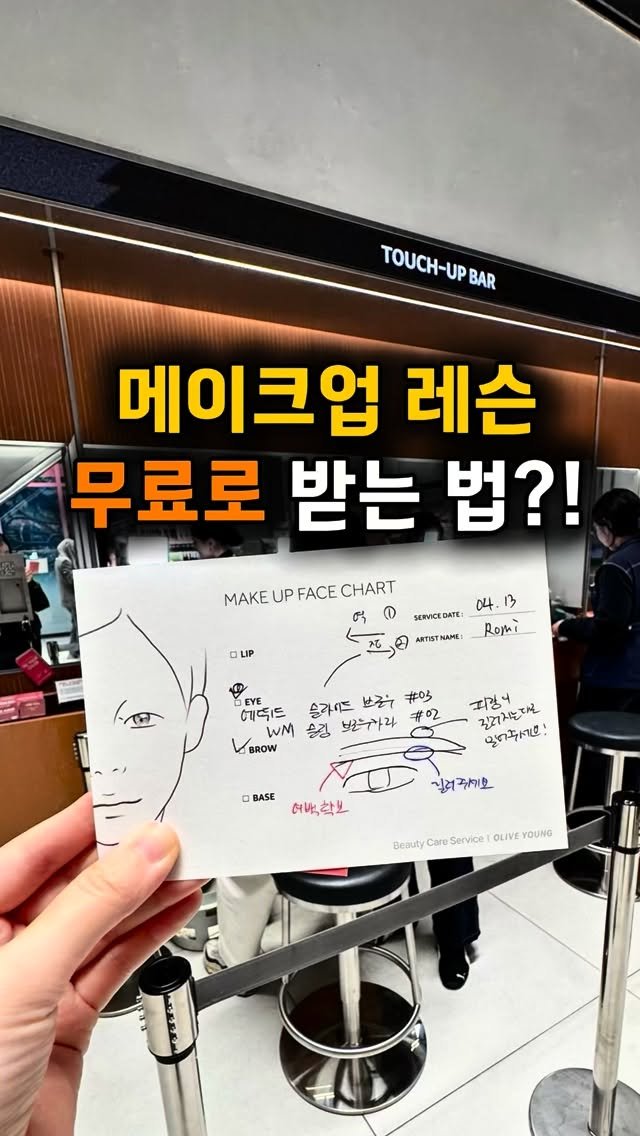 TOUCH-UP BAR
메이크업 레슨
무료로 받는 법?!
MAKE UP FACE CHART
SERVICE DATE : 04.13
ARTIST NAME : Romi
①
②
□ LIP
□ EYE
에뛰드 슬라이드 브로우 #03
WM 슬림 브로우카라 #02
□ BROW
□ BASE
여백확보
길러주세요
Beauty Care Service | OLIVE YOUNG